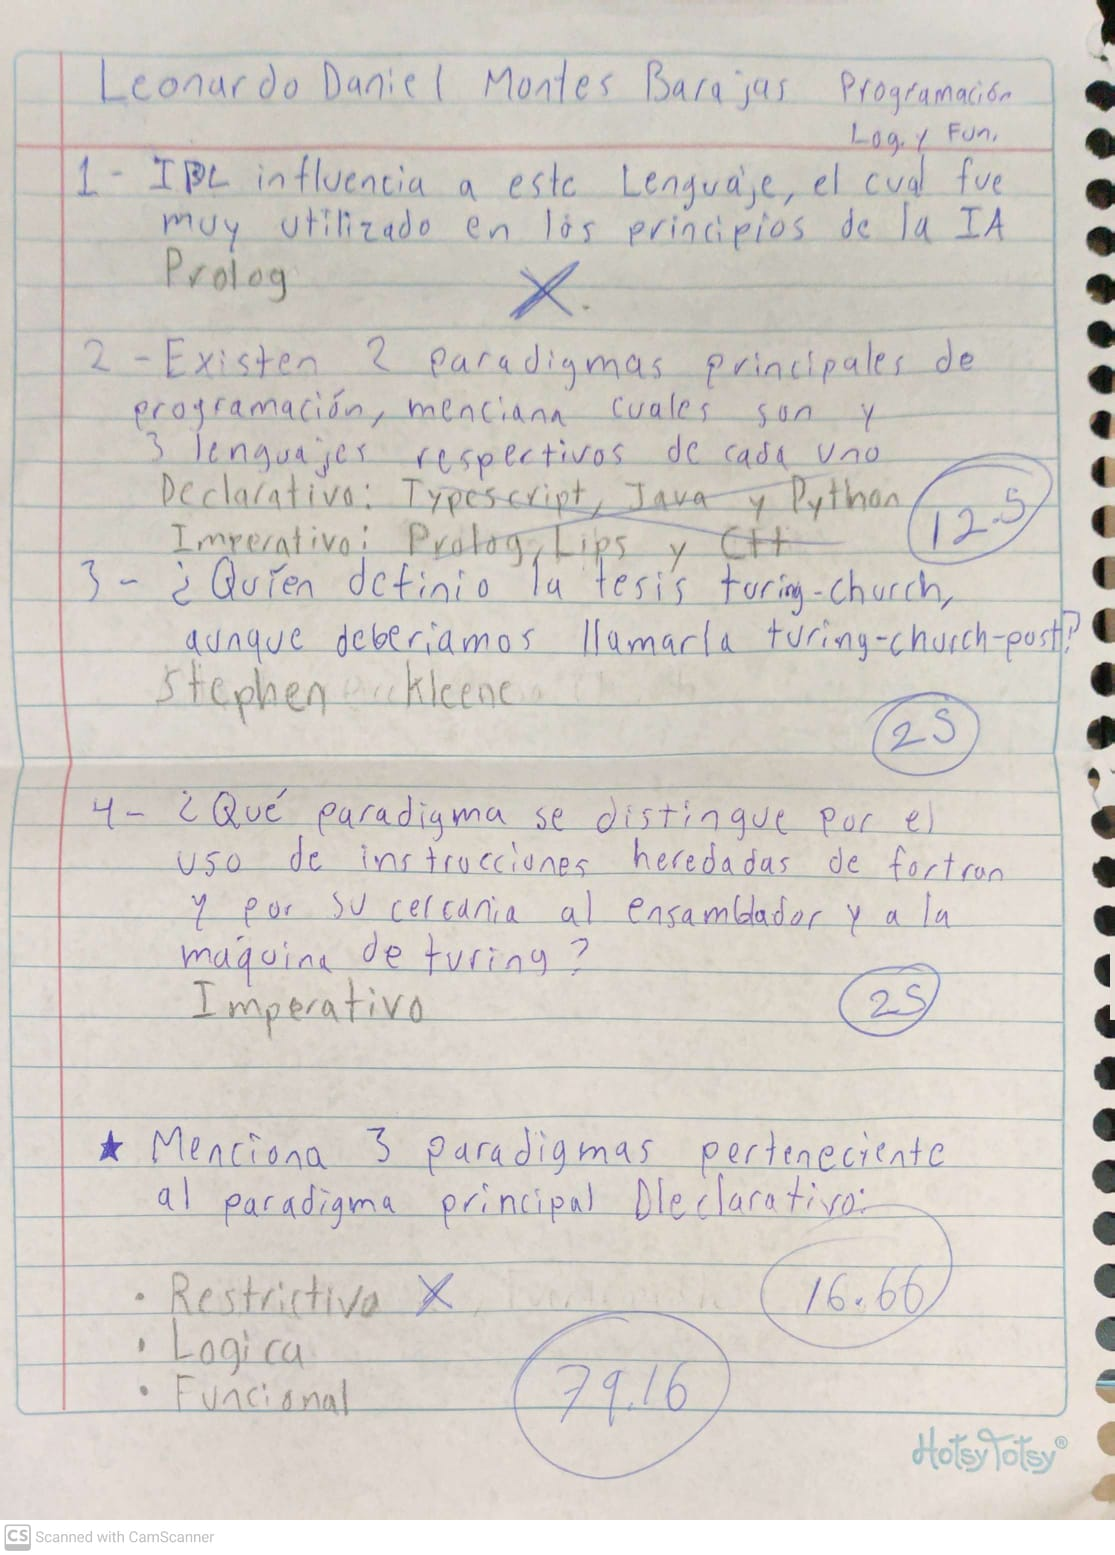 Leonardo Daniel Montes Barajas Programación
Log. y Fun.
1- IPL influencia a este Lenguaje, el cual fue
muy utilizado en los principios de la IA
Prolog
X
2 - Existen 2 paradigmas principales de
programación, menciana cuales son y
3 lenguajes respectivos de cada uno
Declarativo: Typescript, Java y Python
12.5
Imperativo: Prolog, Lips y C++
3- ¿Quien definio la tesis turing-church,
aunque deberiamos llamarla turing-church-post?
Stephen Kleene
25
4- ¿Qué paradigma se distingue por el
uso de instrucciones heredadas de fortran
y por su cercania al ensamblador y a la
maquina de turing?
Imperativo
25
★ Menciona 3 paradigmas perteneciente
al paradigma principal Declarativo:
• Restrictiva X
16.66
• Logica
• Funcional
79.16
HotsyTotsy®
CS Scanned with CamScanner